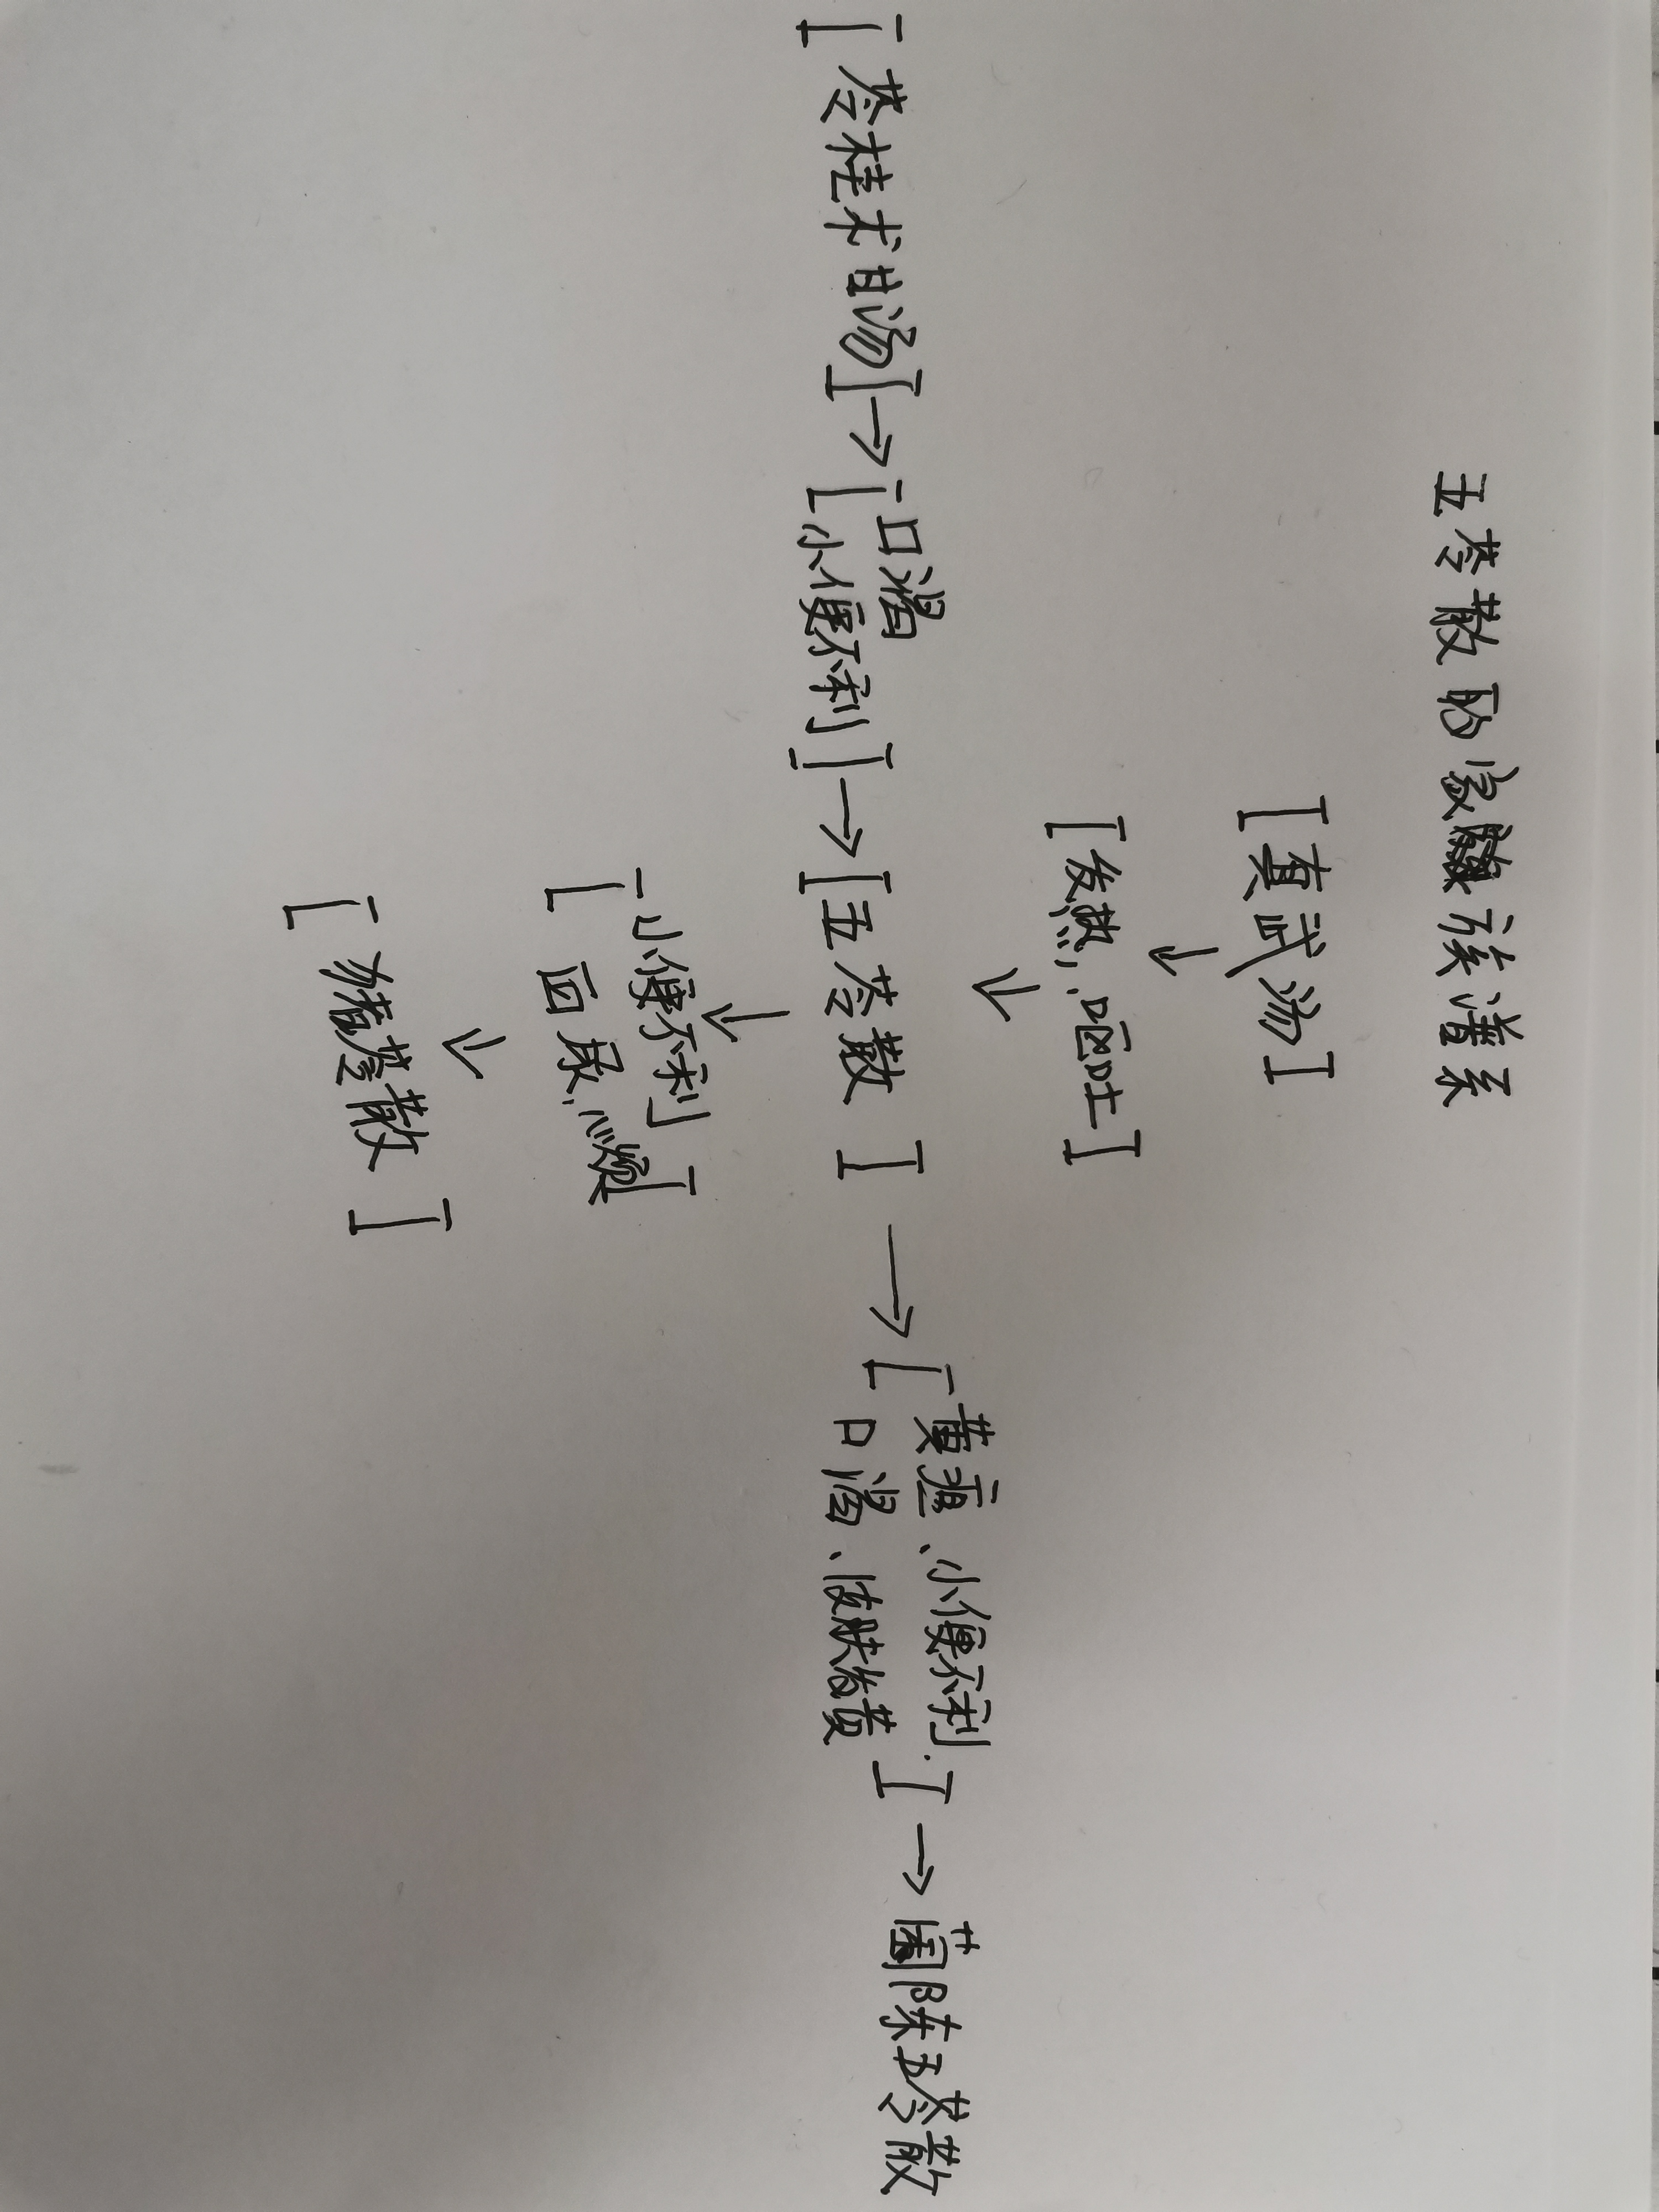 五苓散的家族谱系
[真武汤]
↓
[发热,呕吐]
↓
[苓桂术甘汤]→[口渴
小便不利]→[五苓散]→[黄疸、小便不利.
口渴、皮肤发黄]→茵陈五苓散
↓
[小便不利
血尿,心烦]
↓
[猪苓散]